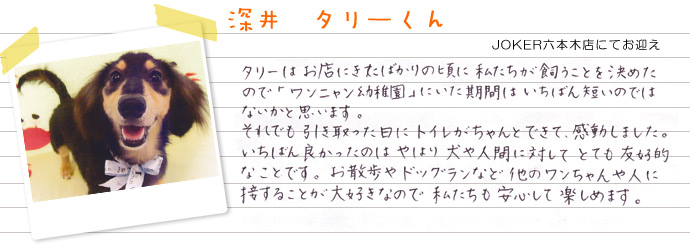 深井 タリーくん
JOKER六本木店にてお迎え
タリーは お店にきたばかりの頃に 私たちが 飼うことを 決めた
ので「ワンニャン幼稚園」にいた期間は いちばん短いのでは
ないかと思います。
それでも 引き取った日に トイレがちゃんとできて、感動しました。
いちばん良かったのは やはり 犬や人間に対して とても 友好的
なことです。 お散歩や ドッグランなど 他のワンちゃんや人に
接することが 大好きなので 私たちも 安心して 楽しめます。